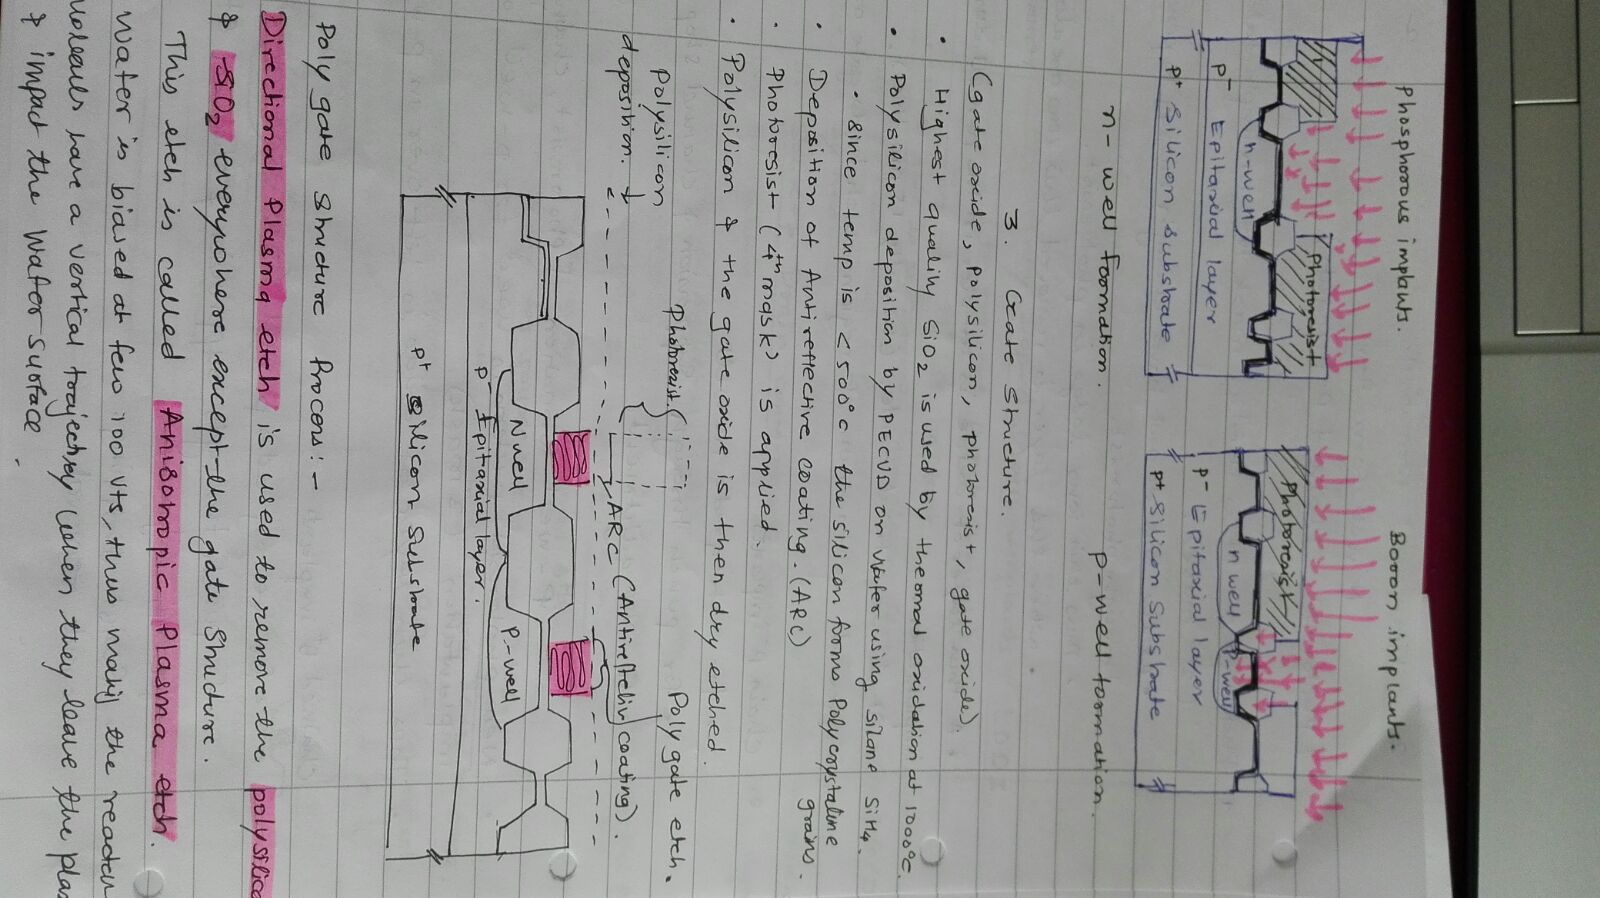 Phosphorous implants.
Boron implants.
Photoresist
Photoresist
n-well
n well
P-well
P- Epitaxial layer
P- Epitaxial layer
P+ Silicon Substrate
P+ Silicon Substrate
n- well Formation.
p-well formation.
3. Gate Structure.
(gate oxide, polysilicon, photoresist, gate oxide).
• Highest quality SiO2 is used by thermal oxidation at 1000°C.
• Polysilicon deposition by PECVD on Wafer using silane SiH4.
• Since temp is < 500°C the silicon forms Polycrystaline
grains.
• Deposition of Antireflective coating. (ARC)
• Photoresist (4th mask) is applied.
• Polysilicon & the gate oxide is then dry etched.
Polysilicon
deposition.
Photoresist.
Poly gate etch.
ARC (Antireflectiv coating).
N well
P-well
P- Epitaxial layer.
P+ Silicon Substrate
Poly gate Structure Process:-
Directional Plasma etch is used to remove the polysilico
& SiO2 everywhere except the gate Structure.
This etch is called Anisotropic Plasma etch.
Wafer is biased at few 100 Vts, thus makig the
have a vertical trajectory when they leave the plas
& impact the Wafer Surface.